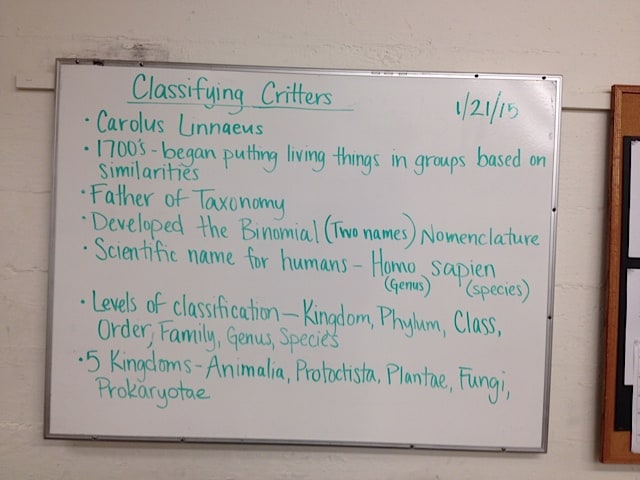 Classifying Critters
1/21/15
• Carolus Linnaeus
• 1700's - began putting living things in groups based on
similarities
• Father of Taxonomy
• Developed the Binomial (Two names) Nomenclature
• Scientific name for humans - Homo sapien
(Genus) (species)
• Levels of classification - Kingdom, Phylum, Class,
Order, Family, Genus, Species
• 5 Kingdoms - Animalia, Protoctista, Plantae, Fungi,
Prokaryotae